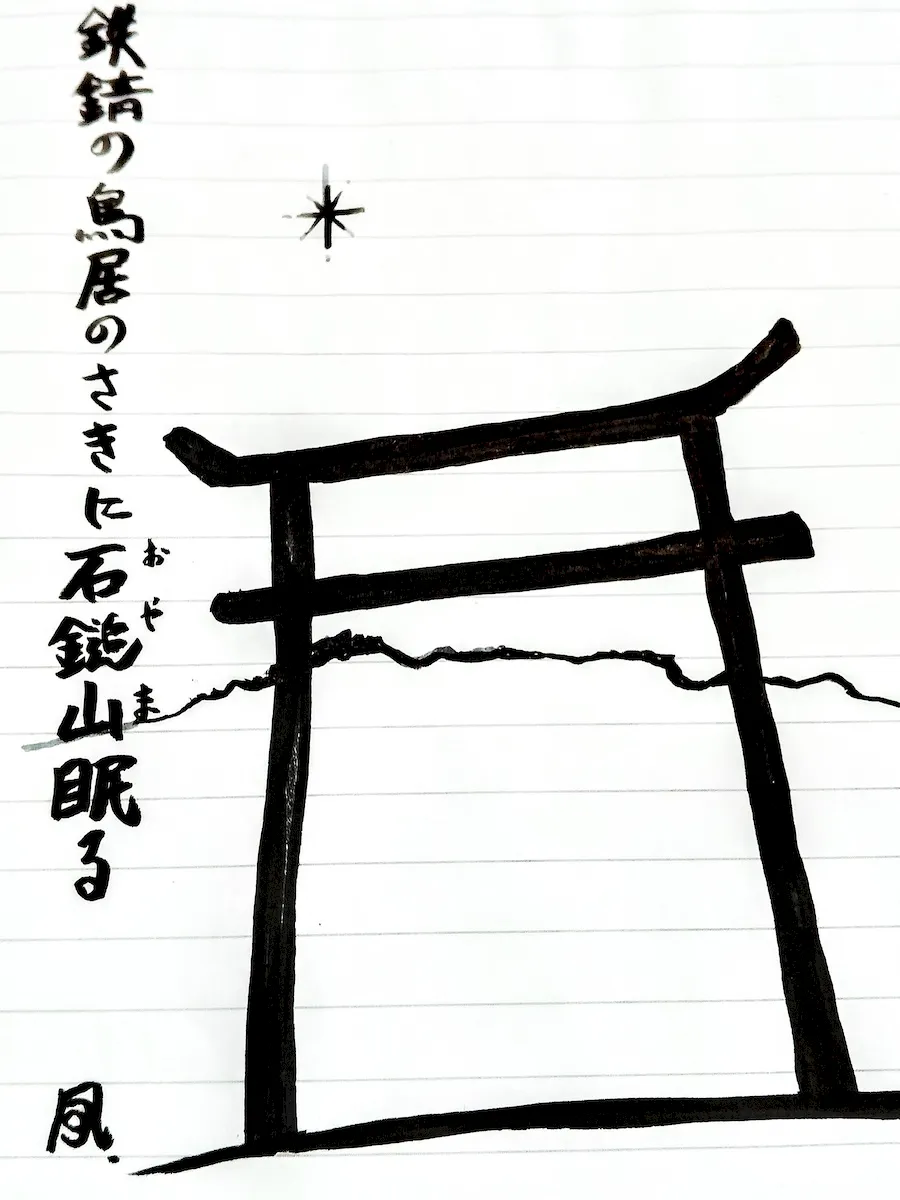 鉄錆の鳥居のさきに石鎚山眠る
おやま
凮